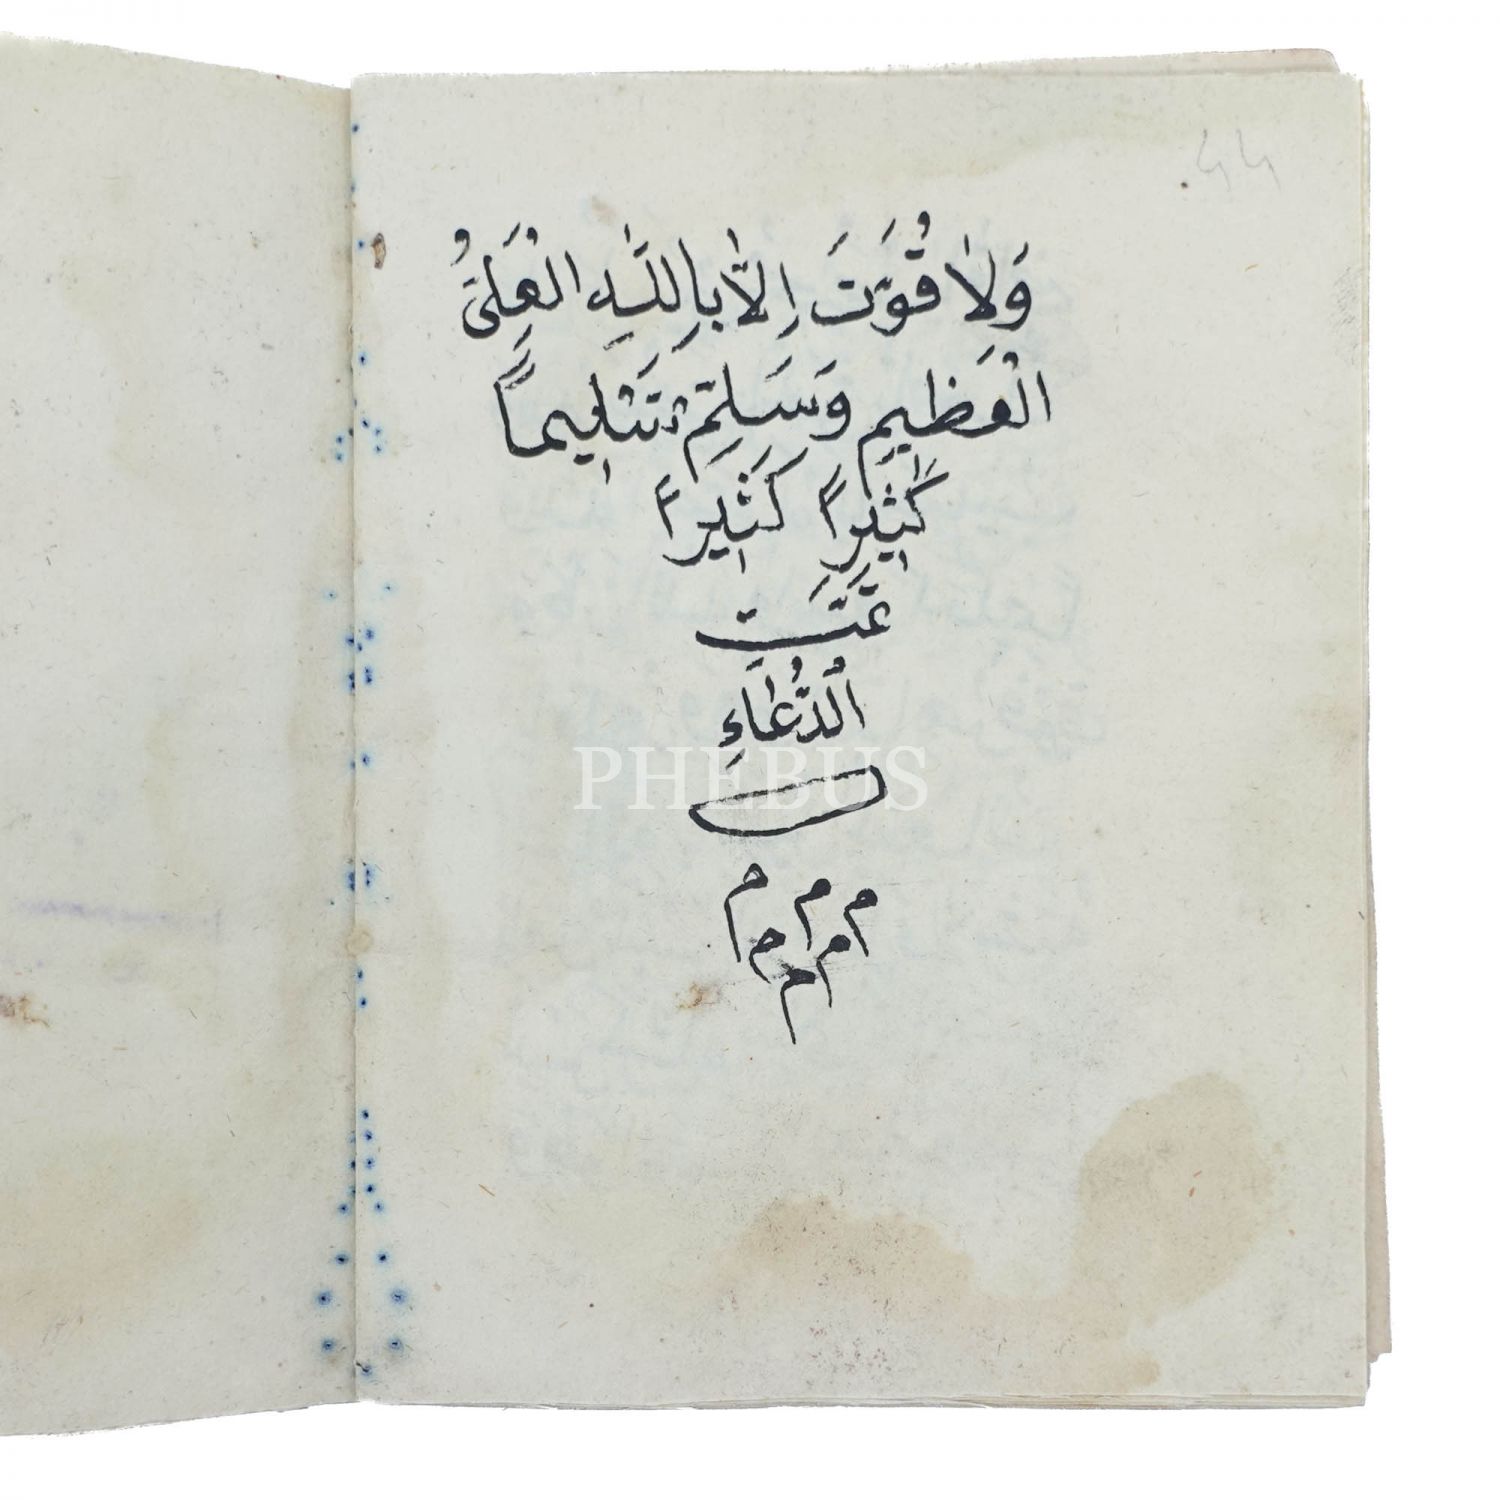 44
وَلَا قُوَّتَ اِلَّا بِاللّٰهِ الْعَلِىُّ
الْعَظِيمِ وَسَلِّمْ تَسْلِيماً
كَثِيراً كَثِيراً
تَمَّتِ
الدُّعَاءِ
PHEBUS
م م م
م م
م